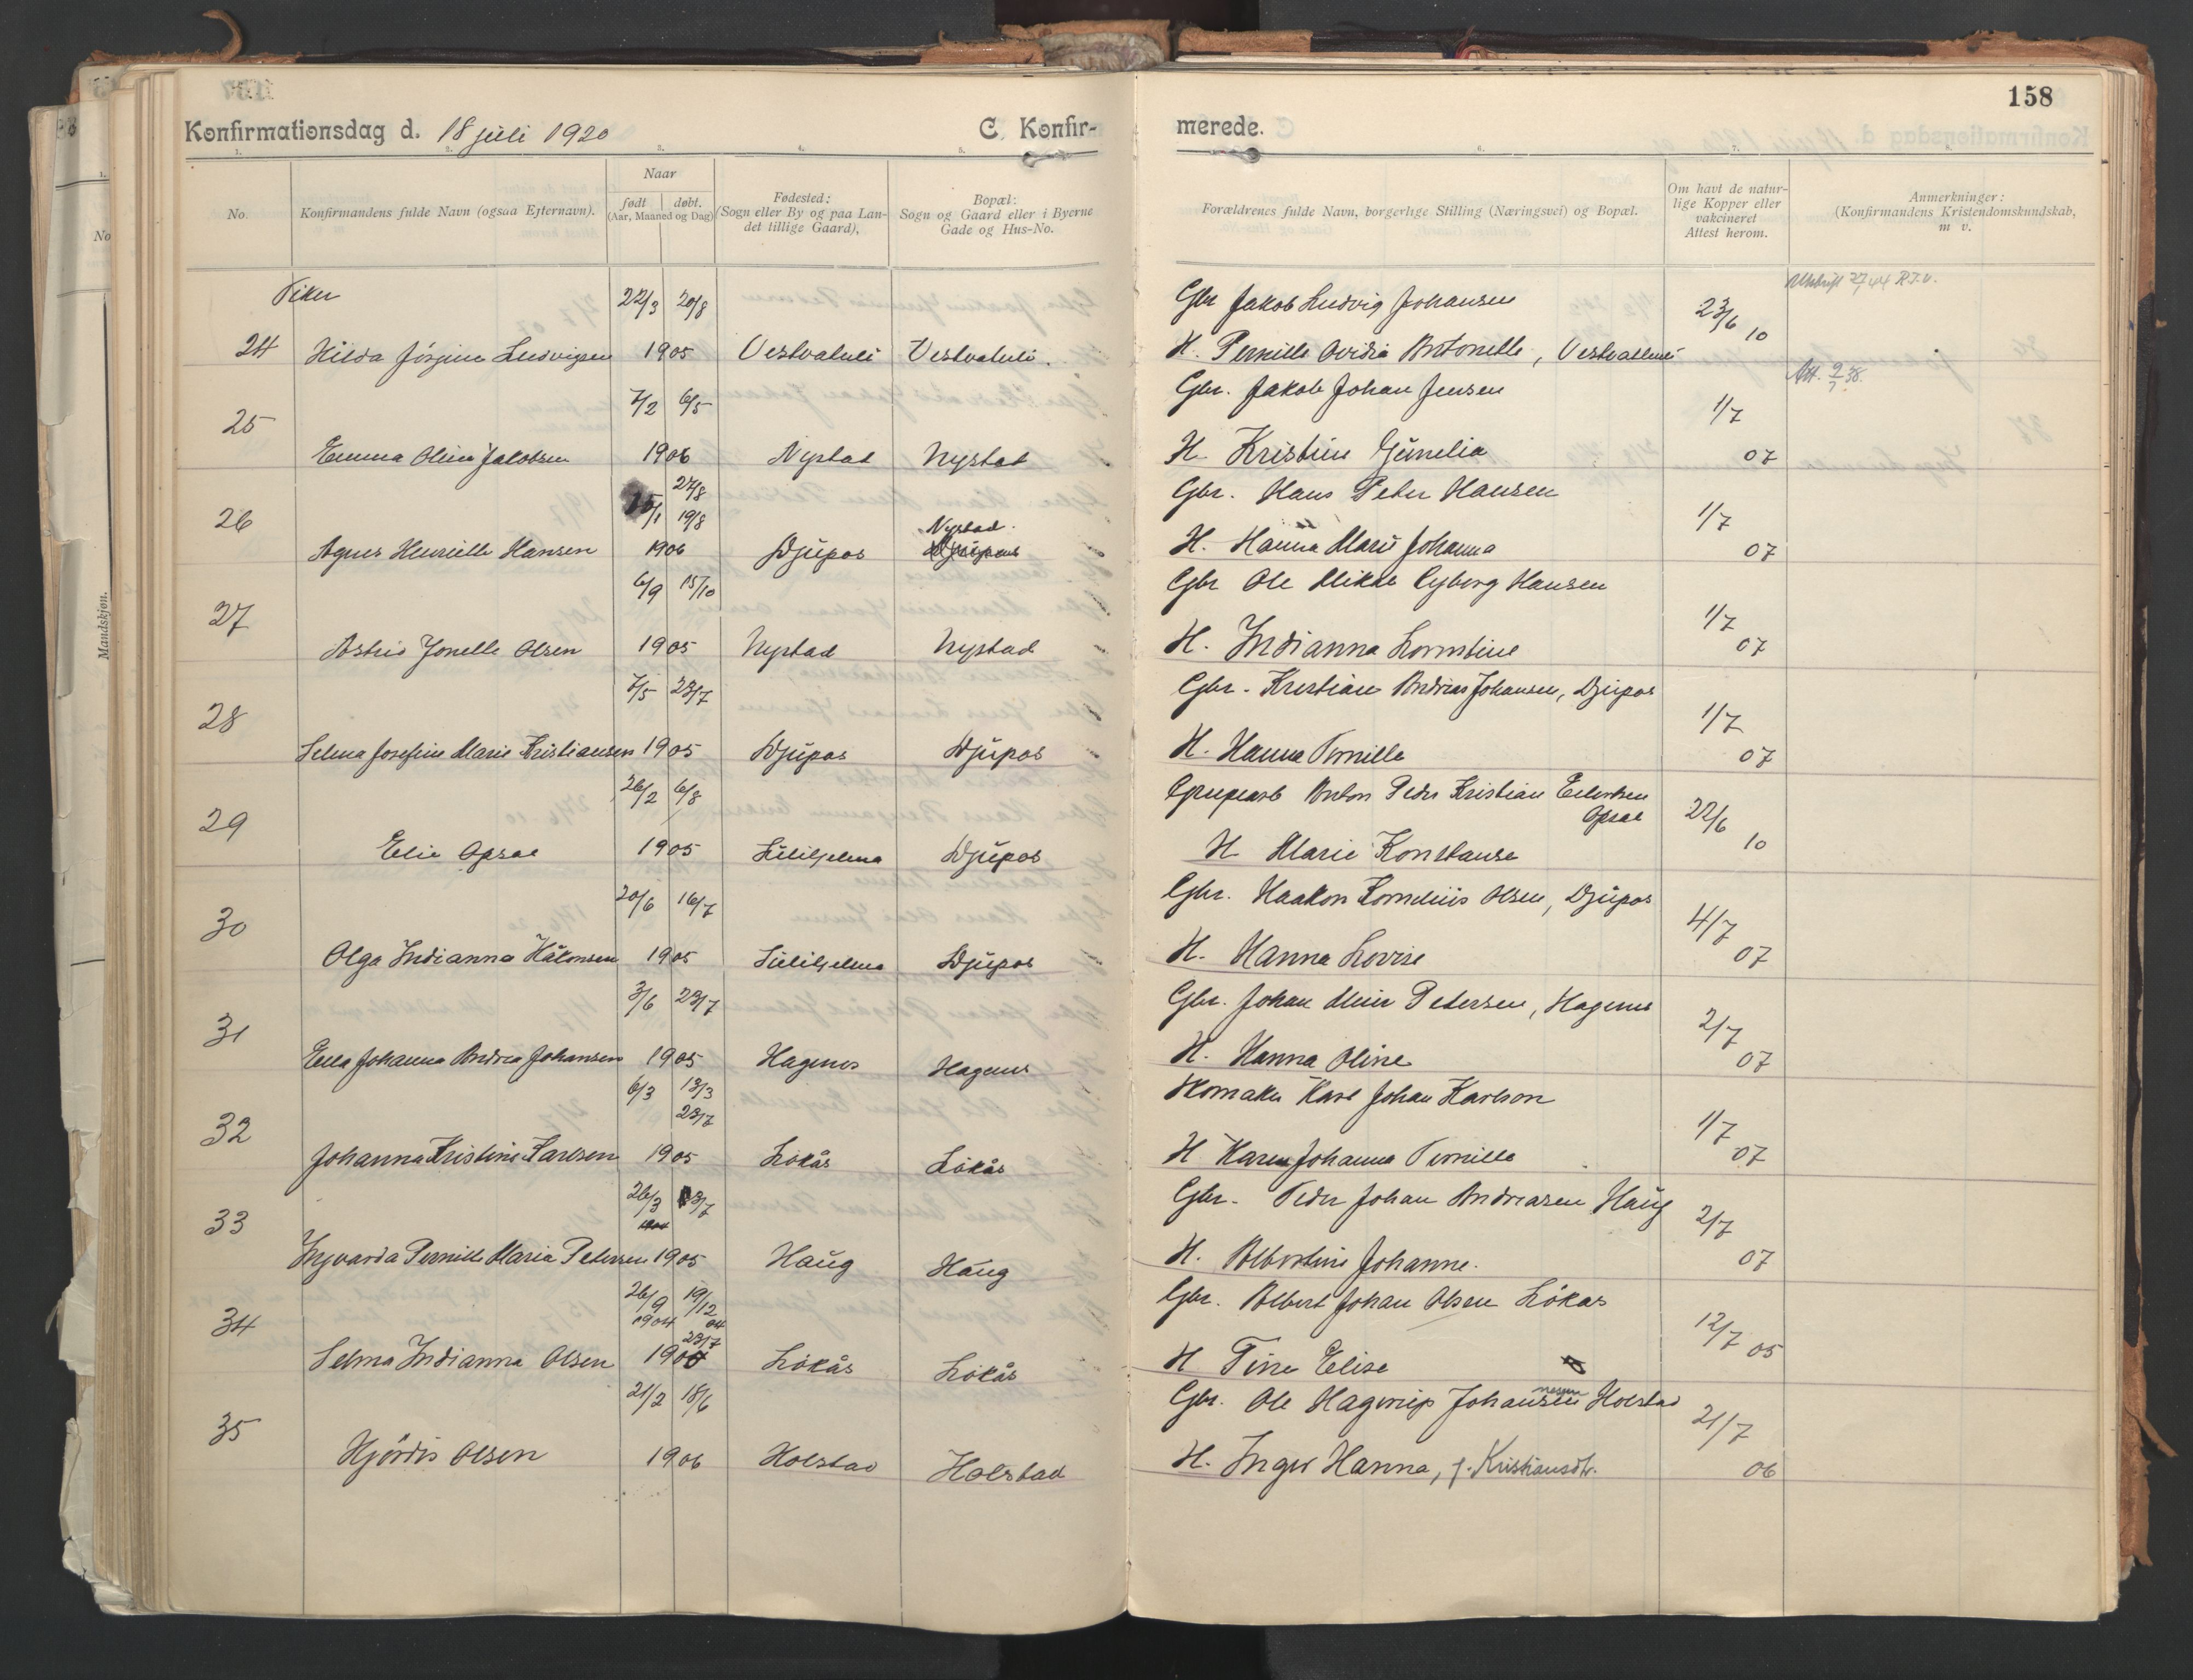 158
Konfirmationsdag d. 18 juli 1920
C. Konfirmerede.
1. 2. 3. 4. 5. 6. 7.
No.
Konfirmandens fulde Navn (ogsaa Efternavn).
Naar
født døbt.
(Aar, Maaned og Dag)
Fødested:
(Sogn eller By og paa Lan-
det tillige Gaard),
Bopæl:
Sogn og Gaard eller i Byerne
Gade og Hus-No.
Forældrenes fulde Navn, borgerlige Stilling (Næringsvei) og Bopæl.
Om havt de natur-
lige Kopper eller
vakcineret
Attest herom.
Anmerkninger:
(Konfirmandens Kristendomskundskab,
m v.
Piker
22/3 20/8 Gbr Jakob Ludvig Johansen 23/6 10
24 Hilda Jørgine Ludvigsen 1905 Vestvatnli Vestvatnli. H. Pernille Ovidia Antonette, Vestvatnli
7/2 6/5 Gbr. Jakob Johan Jensen 1/7 Att. 9/7 38.
25 Emma Oline Jakobsen 1906 Nystad Nystad H. Kristine Gunelia 07
27/8
15/1 19/8 Gbr. Hans Peter Hansen 1/7
26 Agnes Henriette Hansen 1906 Djupos Nystad. H. Hanna Marie Johanna 07
6/9 15/10 Gbr Ole Mikal Nyborg Hansen 1/7
27 Astrid Jonette Olsen 1905 Nystad Nystad H. Indianna Lorentine 07
7/5 23/7 Gbr. Kristian Andreas Johansen, Djupos 1/7
28 Selma Josefine Marie Kristiansen 1905 Djupos Djupos H. Hanna Pernille 07
26/2 6/8 Grubearb Anton Peder Kristian Eilertsen Opsal 22/6
29 Elie Opsal 1905 Sulitjelma Djupos H Marie Konstanse 10
20/6 16/7 Gbr. Haakon Kornelius Olsen, Djupos 4/7
30 Olga Indianna Håkonsen 1905 Sulitjelma Djupos H. Hanna Lovise 07
3/6 23/7 Gbr. Johan Meier Petersen, Hagenes 2/7
31 Erna Johanna Andrea Johansen 1905 Hagenes Hagenes H. Hanna Oline 07
6/3 13/3 Skomaker Karl Johan Karlson 1/7
23/7
32 Johanna Kristine Karlsen 1905 Løkås Løkås H Karen Johanna Pernille 07
26/3 23/7 Gbr. Peder Johan Andreasen Haug 2/7
33 Ingvarda Pernille Maria Petersen 1905 Haug Haug H. Albertine Johanne. 07
26/9 19/12 Gbr. Albert Johan Olsen Løkås 12/7
1904 04
23/7
34 Selma Indianna Olsen 1904 Løkås Løkås H Tine Elise 05
21/2 18/6 Gbr. Ole Hagerup Johannesen Holstad 21/7
35 Hjørdis Olsen 1906 Holstad Holstad H. Inger Hanna, f. Kristiansdtr. 06
No
Mandskjøn.